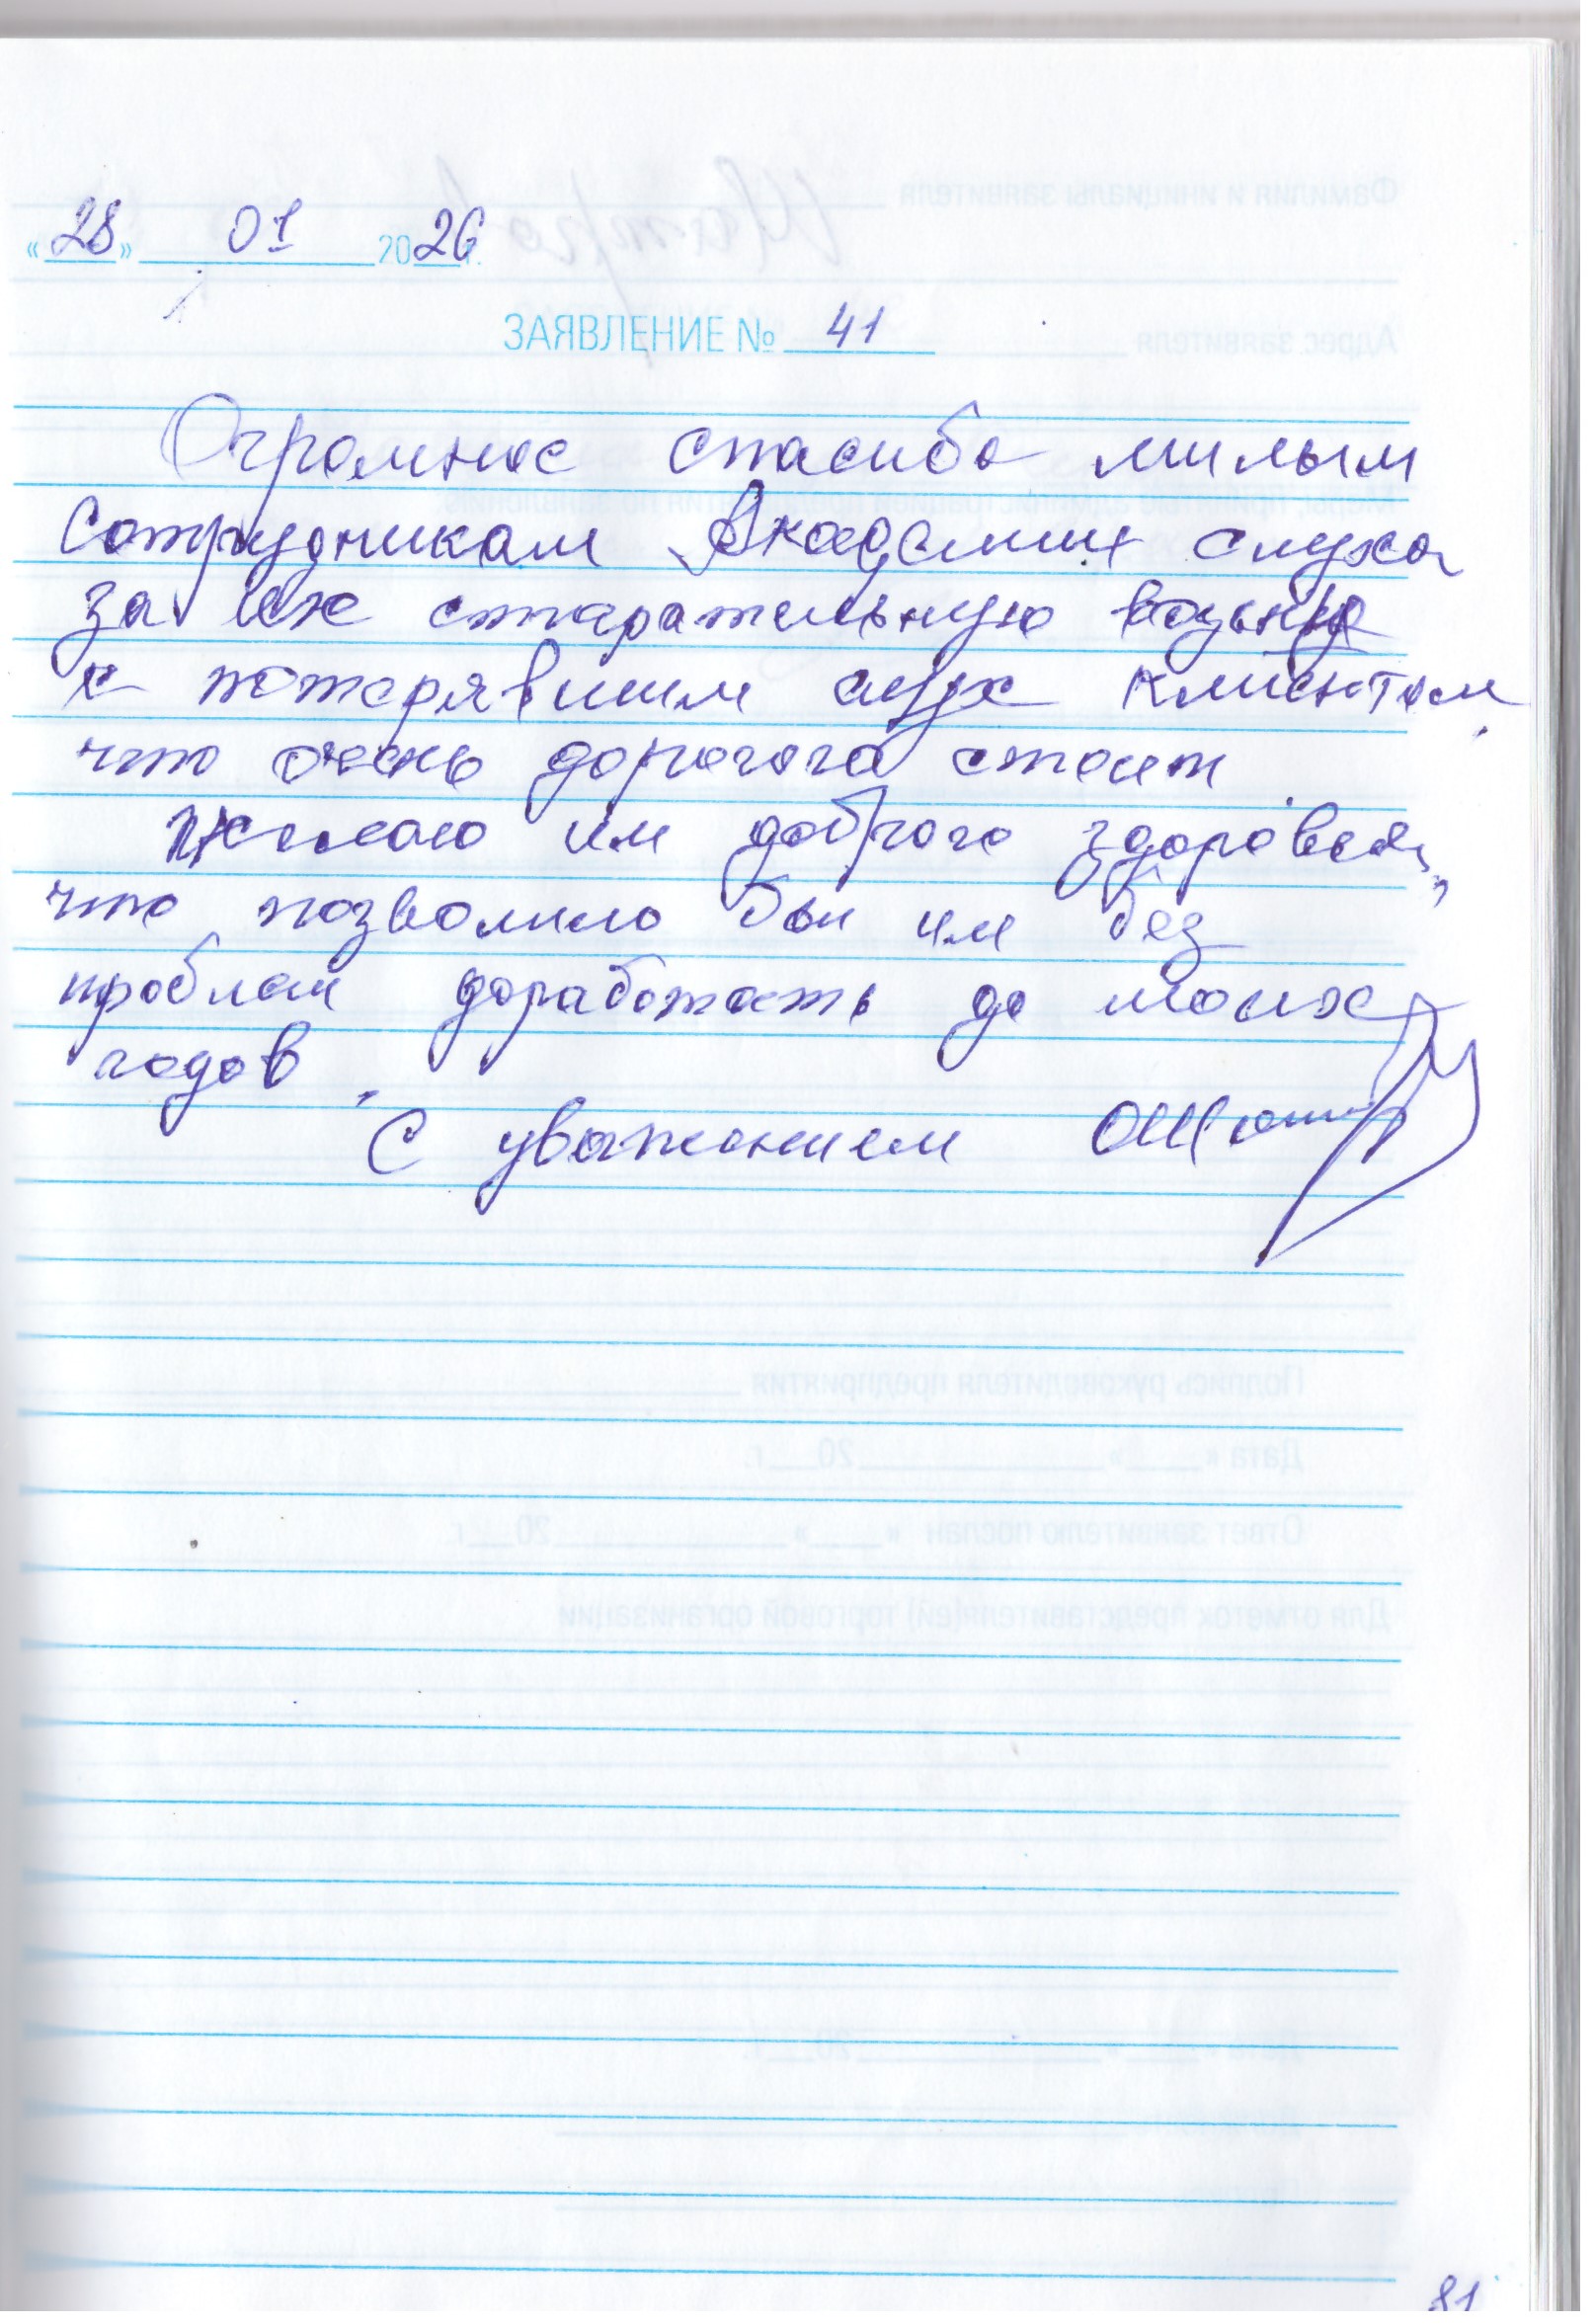 «28» 01 2026 г.
ЗАЯВЛЕНИЕ № 41
Огромное спасибо милым
сотрудникам Академии слуха
за их старательную возню
с потерявшим слух клиентом
что очень дорогого стоит
Желаю им доброго здоровья,
что позволило бы им без
проблем доработать до моих
годов.
С уважением
81